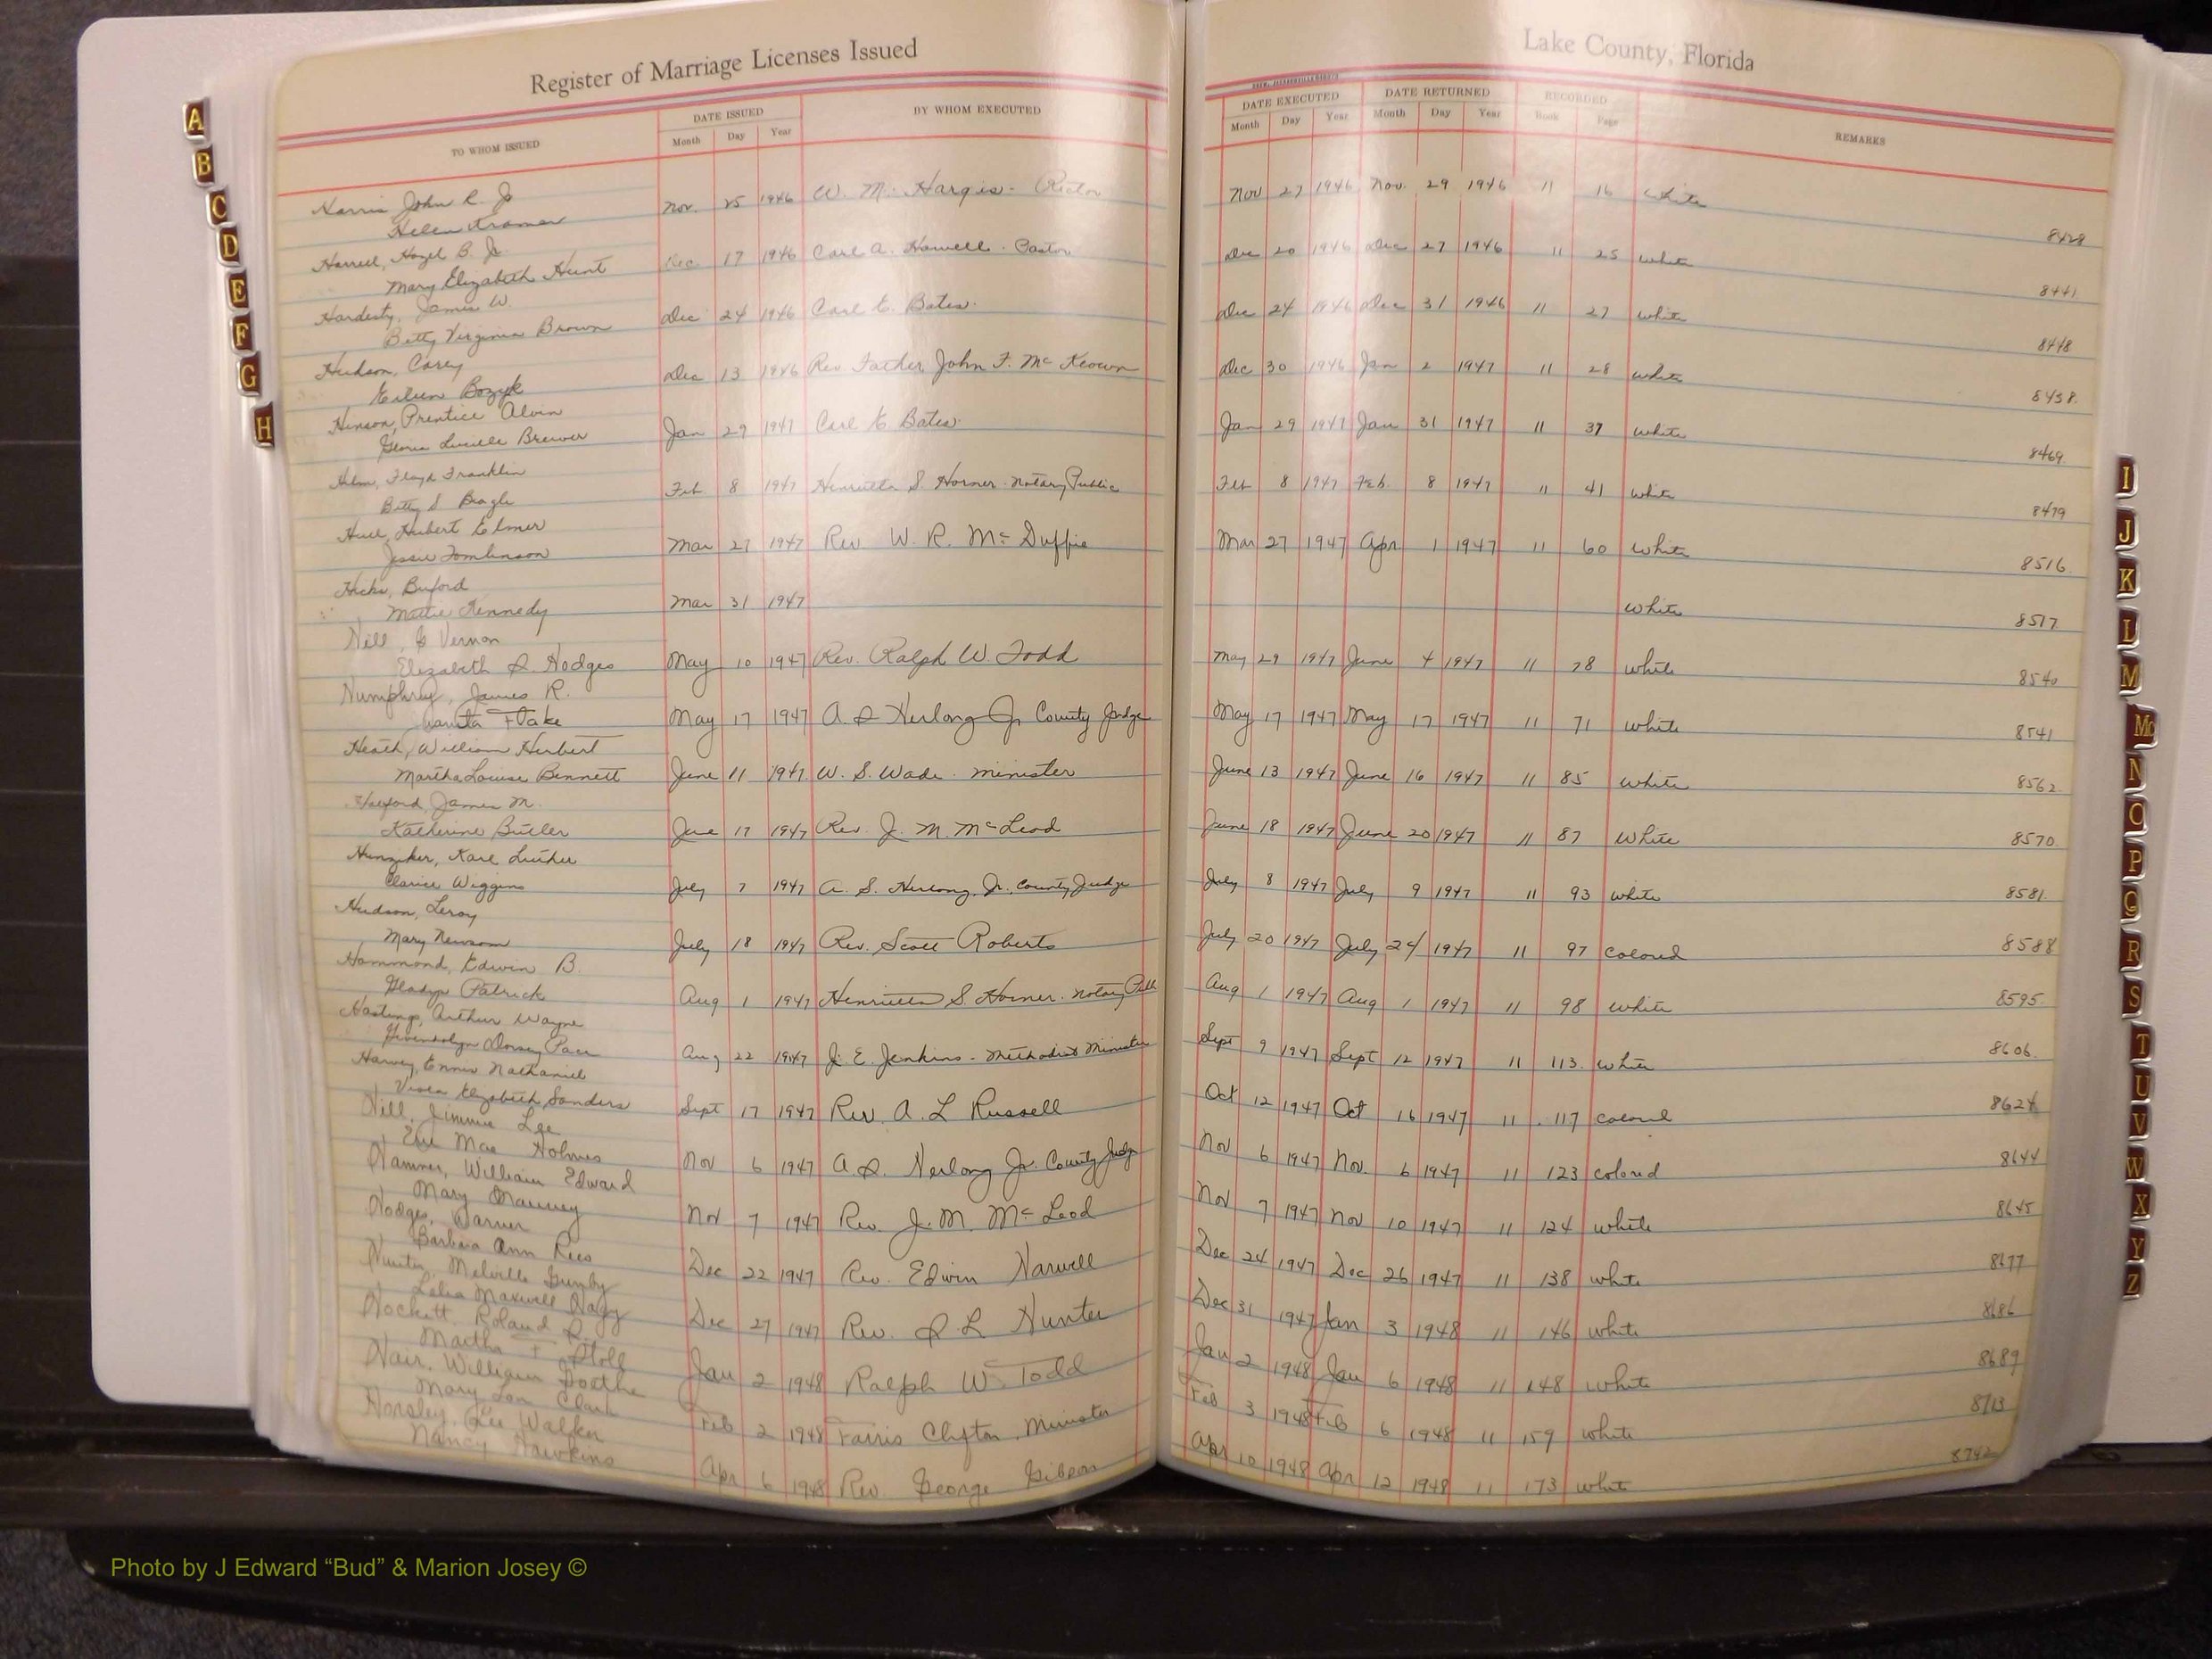 Register of Marriage Licenses Issued
Lake County, Florida
TO WHOM ISSUED
DATE ISSUED
Month Day Year
BY WHOM EXECUTED
DATE EXECUTED
Month Day Year
DATE RETURNED
Month Day Year
RECORDED
Book Page
REMARKS
Harris John R. Jr
Helen Kramer
Nov. 25 1946 W. M. Hargis - Rector Nov 27 1946 Nov. 29 1946 11 16 white 8428
Harrell, Hazel B. Jr.
Mary Elizabeth Hunt
Dec. 17 1946 Carl A. Howell - Pastor Dec 20 1946 Dec 27 1946 11 25 white 8441
Hardesty, James W.
Betty Virginia Brown
Dec 24 1946 Carl E. Bates. Dec 24 1946 Dec 31 1946 11 27 white 8448
Hudson, Carey
Eileen Bozyk
Dec 13 1946 Rev. Father John F. McKeown Dec 30 1946 Jan 2 1947 11 28 white 8438
Hinson, Prentice Alvin
Gloria Lucille Brewer
Jan 29 1947 Carl E. Bates. Jan 29 1947 Jan 31 1947 11 37 white 8469
Helm, Floyd Franklin
Betty S. Beagle
Feb 8 1947 Henrietta S. Horner - Notary Public Feb 8 1947 Feb. 8 1947 11 41 white 8479
Huel, Hubert Elmer
Jessie Tomlinson
Mar 27 1947 Rev W. R. McDuffie Mar 27 1947 Apr 1 1947 11 60 white 8516
Hicks, Buford
Mattie Kennedy
Mar 31 1947 white 8517
Hill, G Vernon
Elizabeth S. Hodges
May 10 1947 Rev. Ralph W. Todd May 29 1947 June 4 1947 11 78 white 8540
Humphrey, James R.
Juanita Flake
May 17 1947 A. S Herlong Jr County Judge May 17 1947 May 17 1947 11 71 white 8541
Heath, William Herbert
Martha Louise Bennett
June 11 1947 W. S. Wade. minister June 13 1947 June 16 1947 11 85 white 8562
Halford, James M.
Katherine Butler
June 17 1947 Rev. J. M. McLeod June 18 1947 June 20 1947 11 87 White 8570
Hunziker, Karl Luther
Clarice Wiggins
July 7 1947 A. S. Herlong, Jr., County Judge July 8 1947 July 9 1947 11 93 white 8581
Hudson, Leroy
Mary Newsom
July 18 1947 Rev. Scott Roberts July 20 1947 July 24 1947 11 97 colored 8588
Hammond, Edwin B.
Gladys Patrick
Aug 1 1947 Henrietta S Horner. Notary Pub Aug 1 1947 Aug 1 1947 11 98 white 8595
Hastings, Arthur Wayne
Gwendolyn Dorsey Pace
Aug 22 1947 J. E. Jenkins - Methodist Minister Sept 9 1947 Sept 12 1947 11 113. white 8606
Harvey, Ennis Nathaniel
Viola Elizabeth Sanders
Sept 17 1947 Rev. A. L Russell Oct 12 1947 Oct 16 1947 11 117 colored 8624
Hill, Jimmie Lee
Mae Holmes
Nov 6 1947 A S. Herlong Jr. County Judge Nov 6 1947 Nov. 6 1947 11 123 colored 8644
Hamner, William Edward
Mary
Nov 7 1947 Rev. J. M. McLeod Nov 7 1947 Nov 10 1947 11 124 white 8645
Hodges, Warner
Barbara Ann Rees
Dec 22 1947 Rev. Edwin Harwell Dec 24 1947 Dec 26 1947 11 138 white 8677
Hunter, Melville Gunby
Lelia Maxwell Nagy
Dec 27 1947 Rev. S L Hunter Dec 31 1947 Jan 3 1948 11 146 white 8686
Hockett, Roland R.
Martha F Stoll
Jan 2 1948 Ralph W. Todd Jan 2 1948 Jan 6 1948 11 148 white 8689
Hair, William Goethe
Mary Lou Clark
Feb 2 1948 Farris Clifton, Minister Feb 3 1948 Feb 6 1948 11 159 white 8713
Horsley, Lee Walker
Nancy Hawkins
Apr 6 1948 Rev. George Gibson Apr 10 1948 Apr 12 1948 11 173 white 8742
A
B
C
D
E
F
G
H
I
J
K
L
M
Mc
N
O
P
Q
R
S
T
U
V
W
X
Y
Z
Photo by J Edward “Bud” & Marion Josey ©